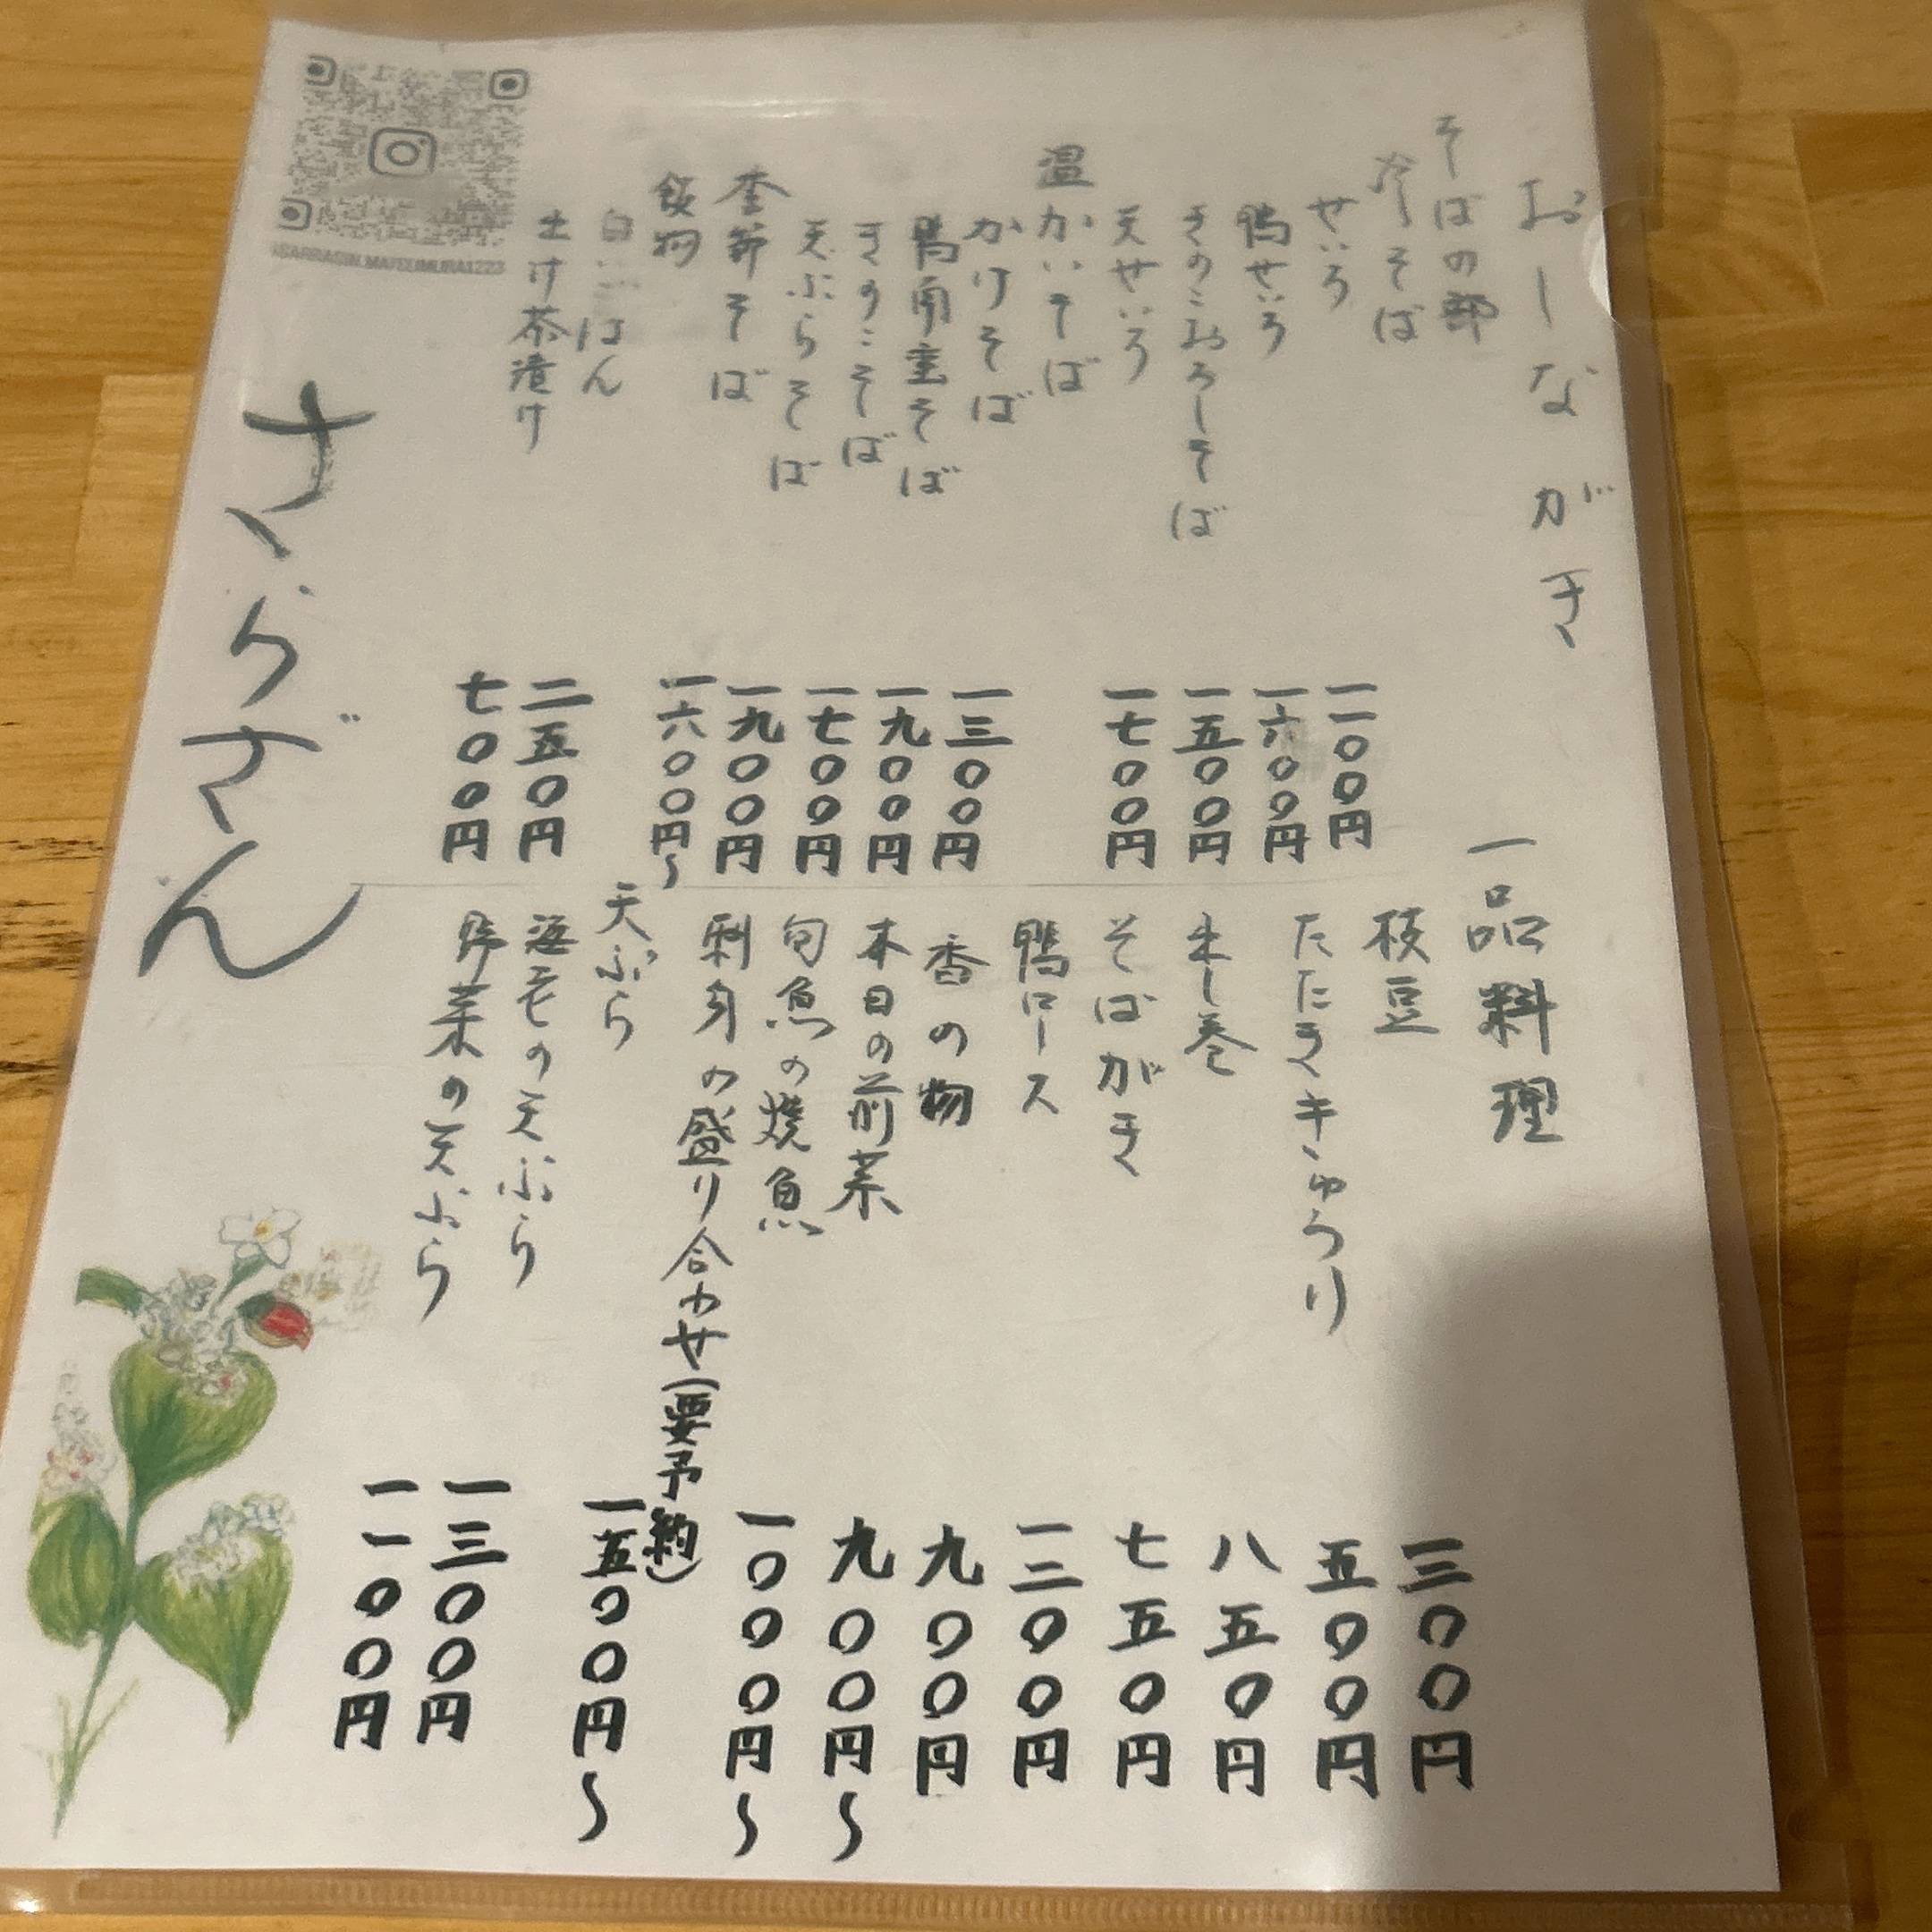 おしながき
そばの部
冷しそば
せいろ 一一〇〇円
鴨せいろ 一六〇〇円
きのこおろしそば 一五〇〇円
天せいろ 一七〇〇円
温かいそば
かけそば 一三〇〇円
鴨南蛮そば 一九〇〇円
きのこそば 一七〇〇円
天ぷらそば 一九〇〇円
季節そば 一六〇〇円〜
飯物
白ごはん 二五〇円
土け茶漬け 七〇〇円
一品料理
枝豆 三〇〇円
たたきキゅうり 五〇〇円
出し巻 八五〇円
そばがき 七五〇円
鴨ロース 一三〇〇円
香の物 九〇〇円
本日の前菜 九〇〇円〜
旬魚の焼魚 一〇〇〇円〜
刺身の盛り合わせ(要予約) 一五〇〇円〜
天ぷら
海老の天ぷら 一三〇〇円
野菜の天ぷら 一一〇〇円
さらざん